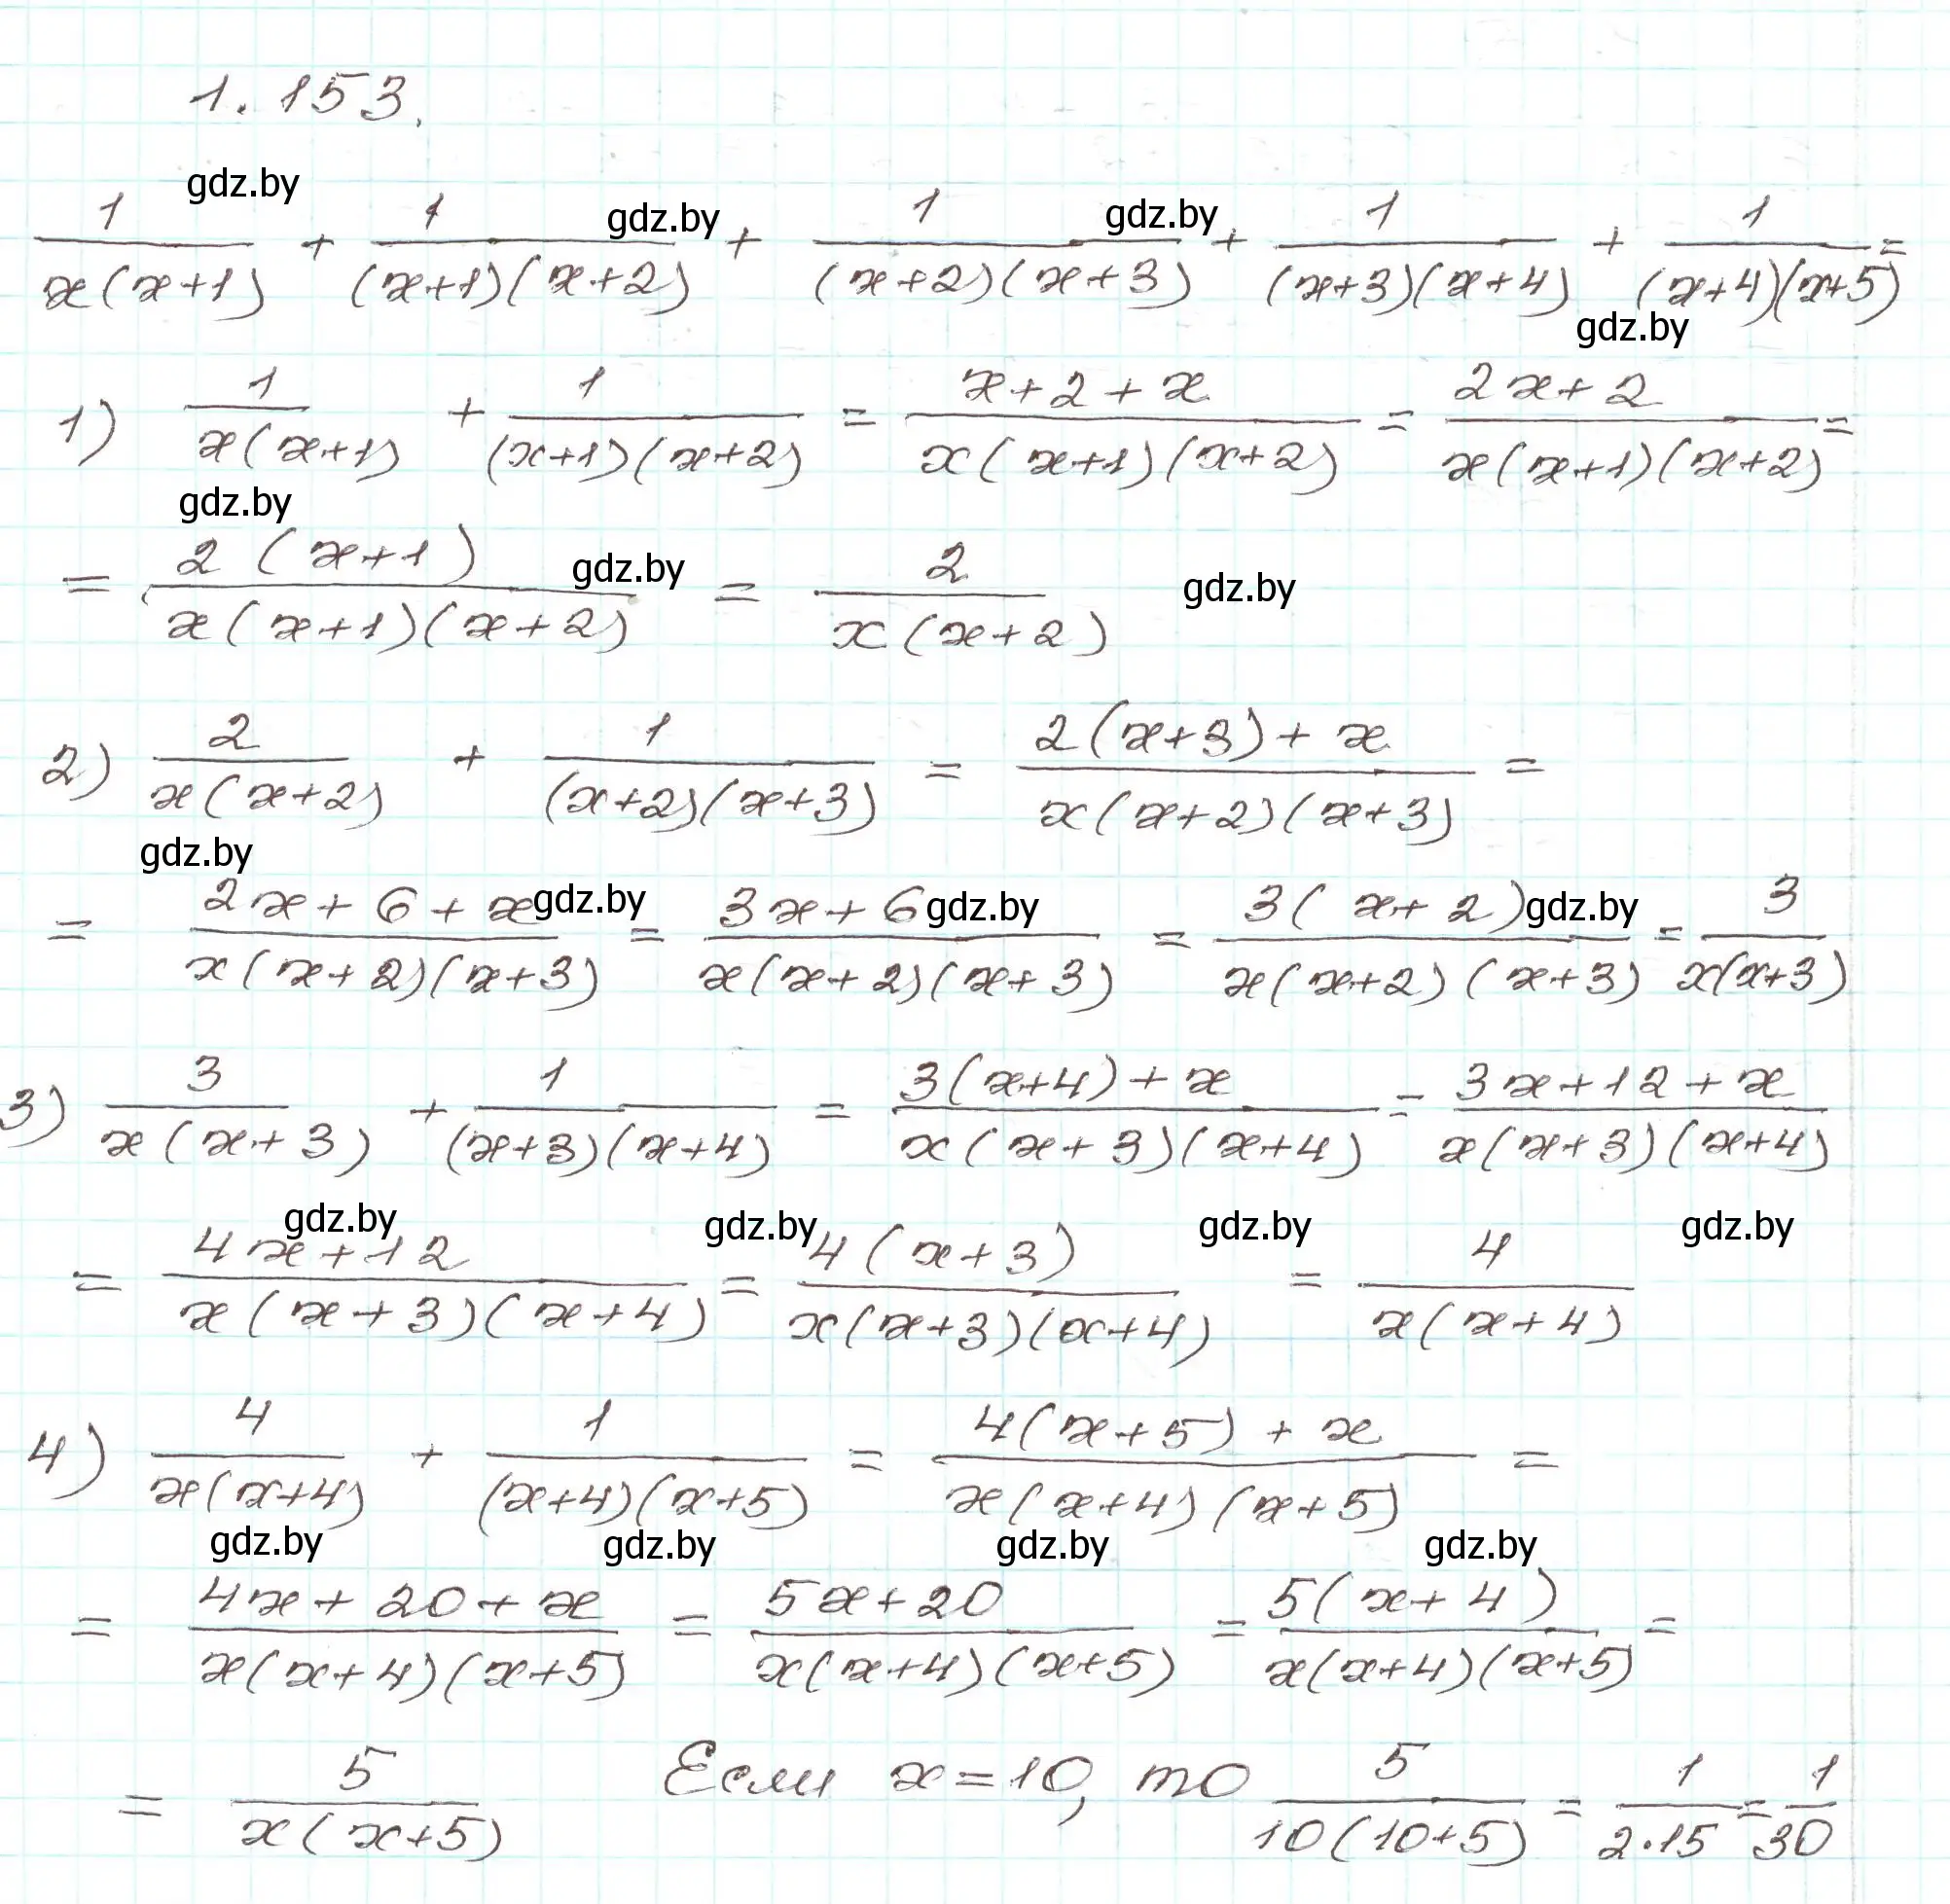 1.153.
gdz.by
1/(x(x+1)) + 1/((x+1)(x+2)) + 1/((x+2)(x+3)) + 1/((x+3)(x+4)) + 1/((x+4)(x+5)) =
gdz.by gdz.by
gdz.by
1) 1/(x(x+1)) + 1/((x+1)(x+2)) = (x+2+x)/(x(x+1)(x+2)) = (2x+2)/(x(x+1)(x+2)) =
gdz.by
= (2(x+1))/(x(x+1)(x+2)) = 2/(x(x+2))
gdz.by gdz.by
2) 2/(x(x+2)) + 1/((x+2)(x+3)) = (2(x+3)+x)/(x(x+2)(x+3)) =
gdz.by
= (2x+6+x)/(x(x+2)(x+3)) = (3x+6)/(x(x+2)(x+3)) = (3(x+2))/(x(x+2)(x+3)) = 3/(x(x+3))
gdz.by gdz.by gdz.by
3) 3/(x(x+3)) + 1/((x+3)(x+4)) = (3(x+4)+x)/(x(x+3)(x+4)) = (3x+12+x)/(x(x+3)(x+4))
gdz.by gdz.by gdz.by gdz.by
= (4x+12)/(x(x+3)(x+4)) = (4(x+3))/(x(x+3)(x+4)) = 4/(x(x+4))
4) 4/(x(x+4)) + 1/((x+4)(x+5)) = (4(x+5)+x)/(x(x+4)(x+5)) =
gdz.by gdz.by gdz.by gdz.by
= (4x+20+x)/(x(x+4)(x+5)) = (5x+20)/(x(x+4)(x+5)) = (5(x+4))/(x(x+4)(x+5)) =
= 5/(x(x+5)) Если x=10, то 5/(10(10+5)) = 1/(2·15) = 1/30